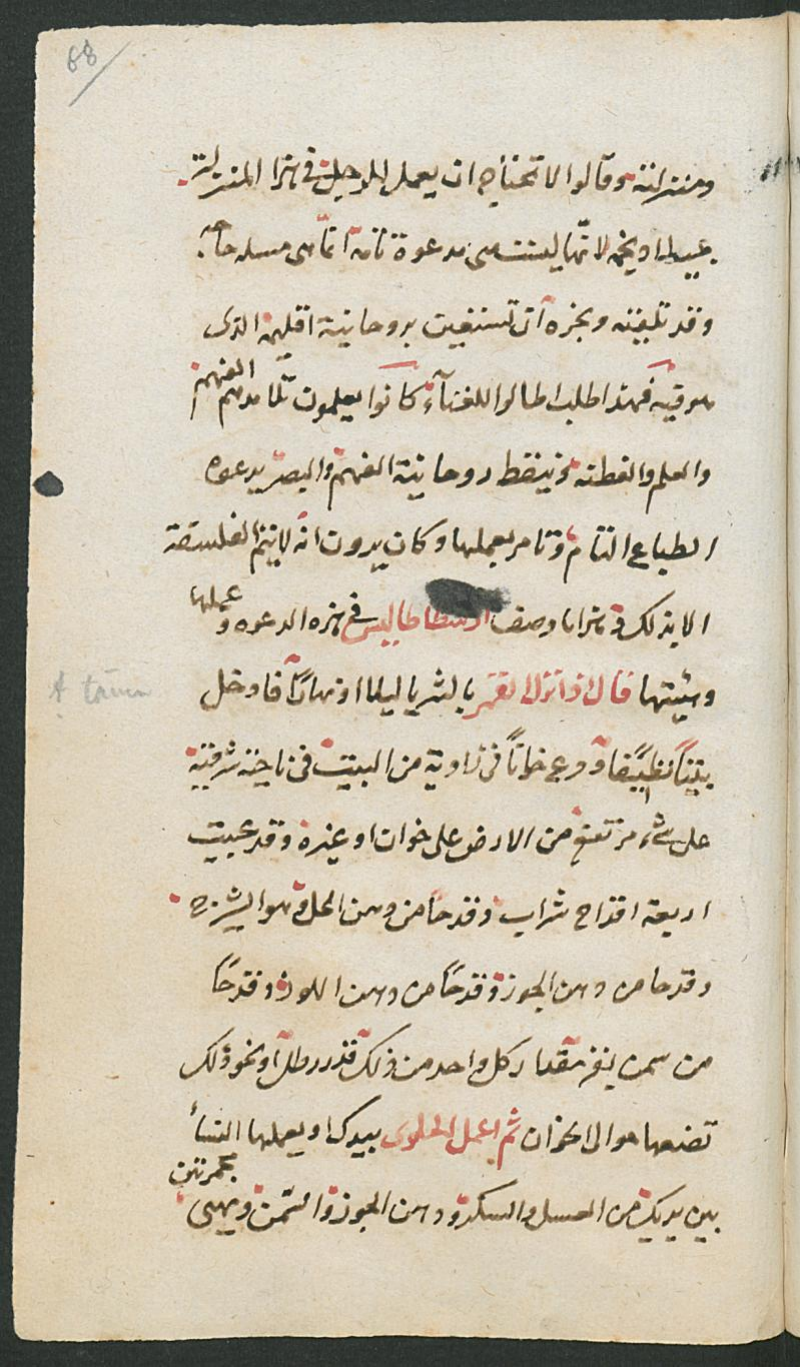 68
ومنزلته وقالوا لا تحتاج ان يعمل للدجل في هذا المنزلة
لانها ليست هى بدعوة تامة انما هى مسلة حاجه
وقد تلبيته وبخره ان تستغيث بروحانية اقليمه الذى
هو فيه فهذا طلب اطالوا اللغاء كانوا يعلمون تلامدهم الفهم
والعلم والفطنه روحانية الفهم والبصر بدعوة
الطباع التام وتامر بعملها وكان يرون انه لا يتم الفلسفة
الا بذلك وصف ارسطاطاليس في هذه الدعوه وعملها
A. tāmm
وهيئتها قال اذا نزل القمر بالشريا ليلا او نهارا فادخل
بيتا نظيفا وضع خوانا في زاوية من البيت فى ناحية شرقية
على شئ مرتفع من الارض على خوان او غيره وقد عبيت
اربعة اقداح شراب وقدحا من دهن الحل وهو الشيرج
وقدحا من دهن الجوز وقدحا من دهن اللوز وقدحا
من سمن بقر مقدار كل واحد من ذلك قدر رطل او نحو ذلك
تضعها حوالى الخوان ثم اعمل الحلوى بيدك او يعملها النسأ
بين يديك من العسل والسكر ودهن الجوز والسمن ويهيى مجمرتين